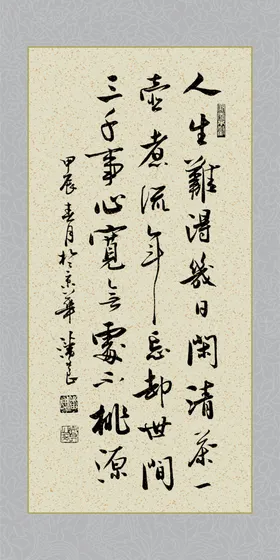 人生難得幾日閑清茶一
壺煮流年忘却世間
三千事心寬無處不桃源
甲辰春月於京華